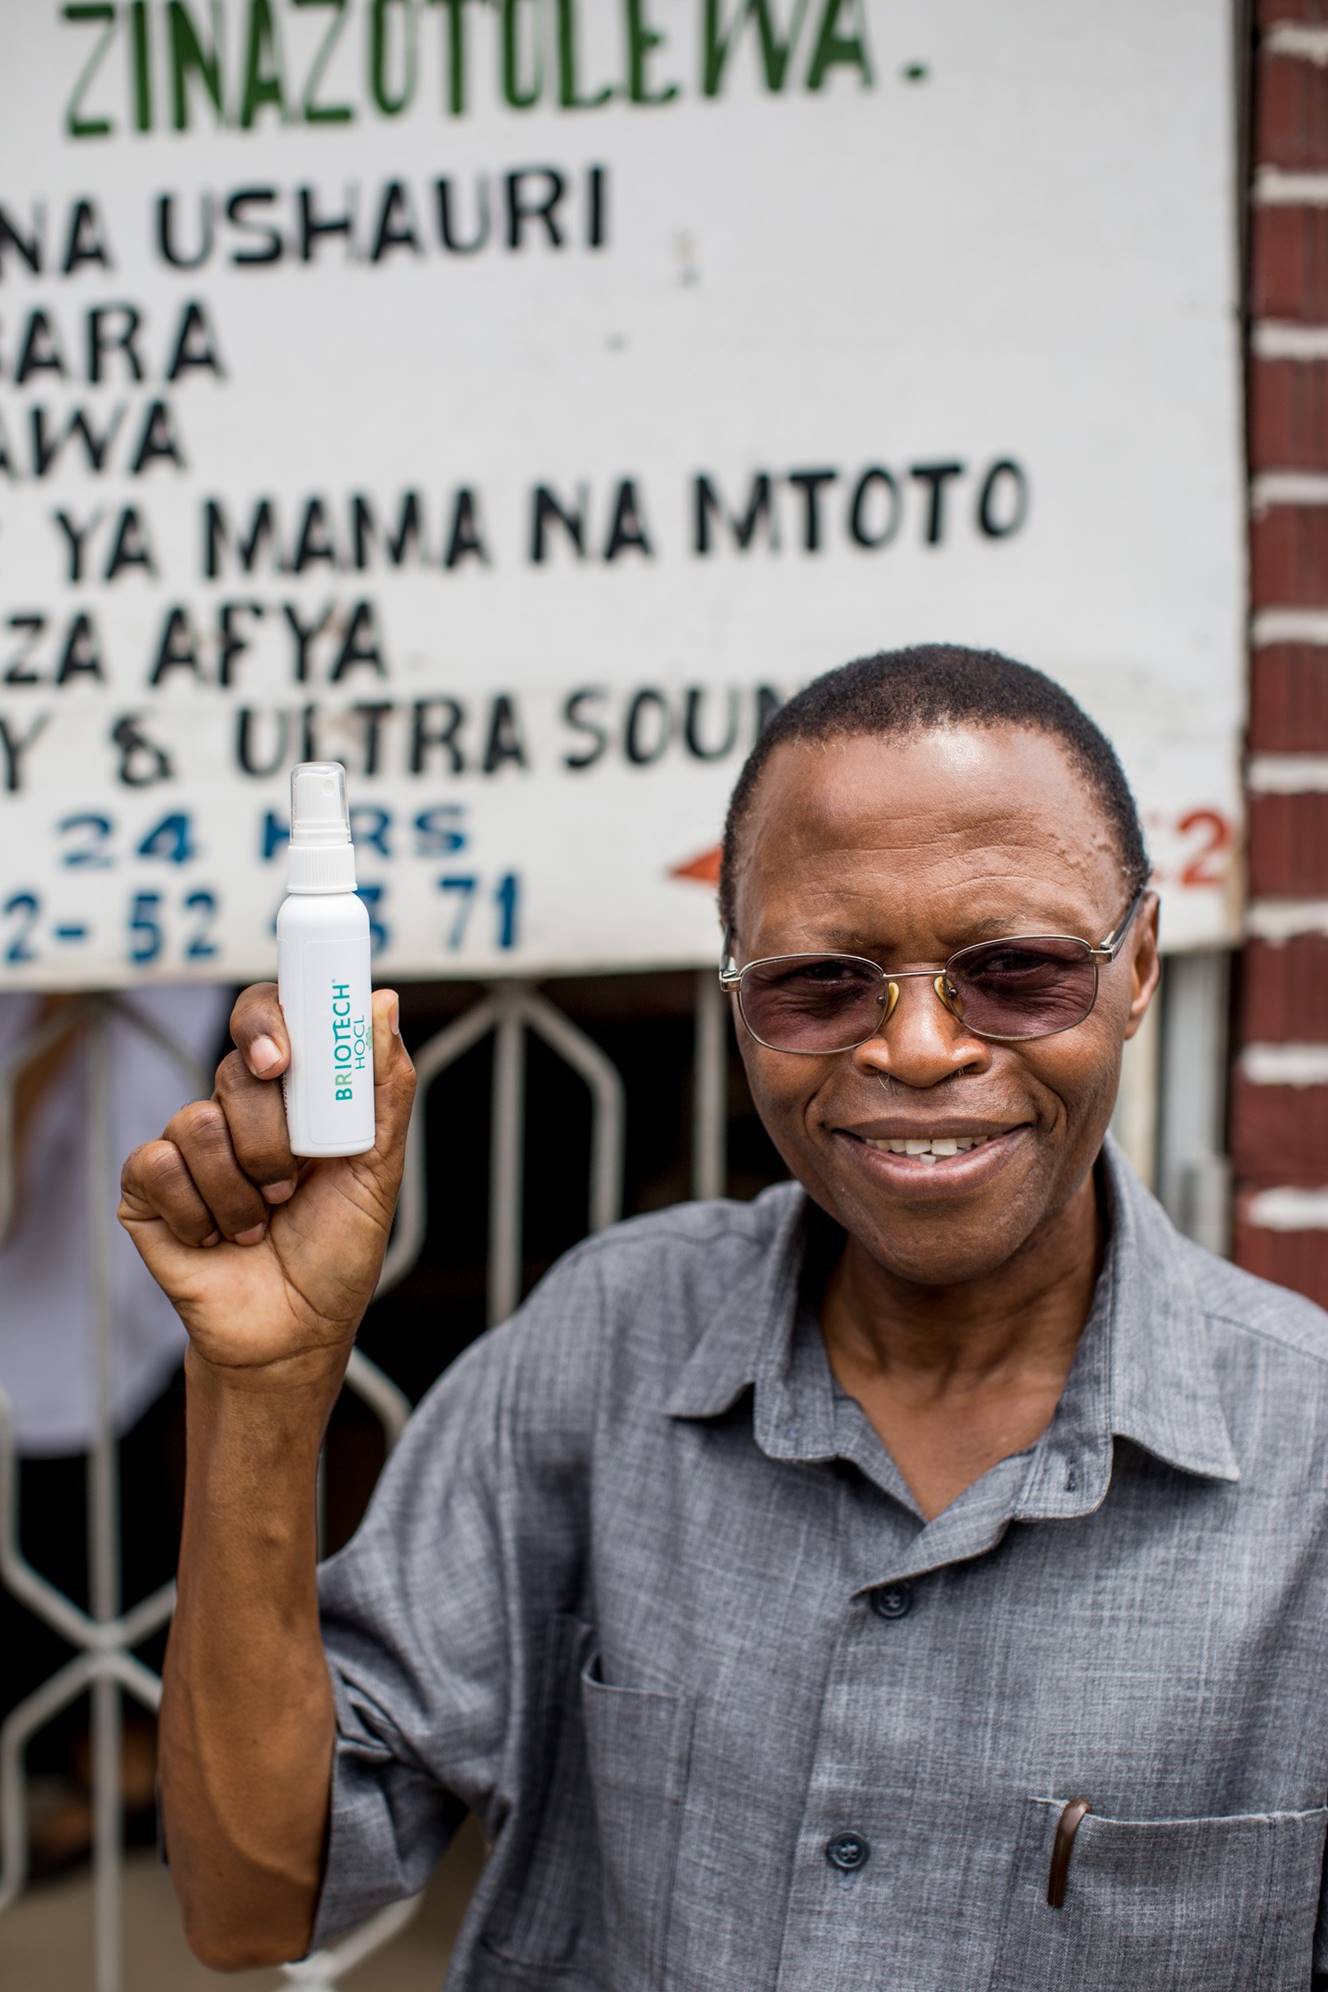 ZINAZOTOLEWA.
NA USHAURI
BARA
AWA
YA MAMA NA MTOTO
ZA AFYA
Y & ULTRA SOUN
24 HRS
2-52 43 71
2
BRIOTECH®
HOCL